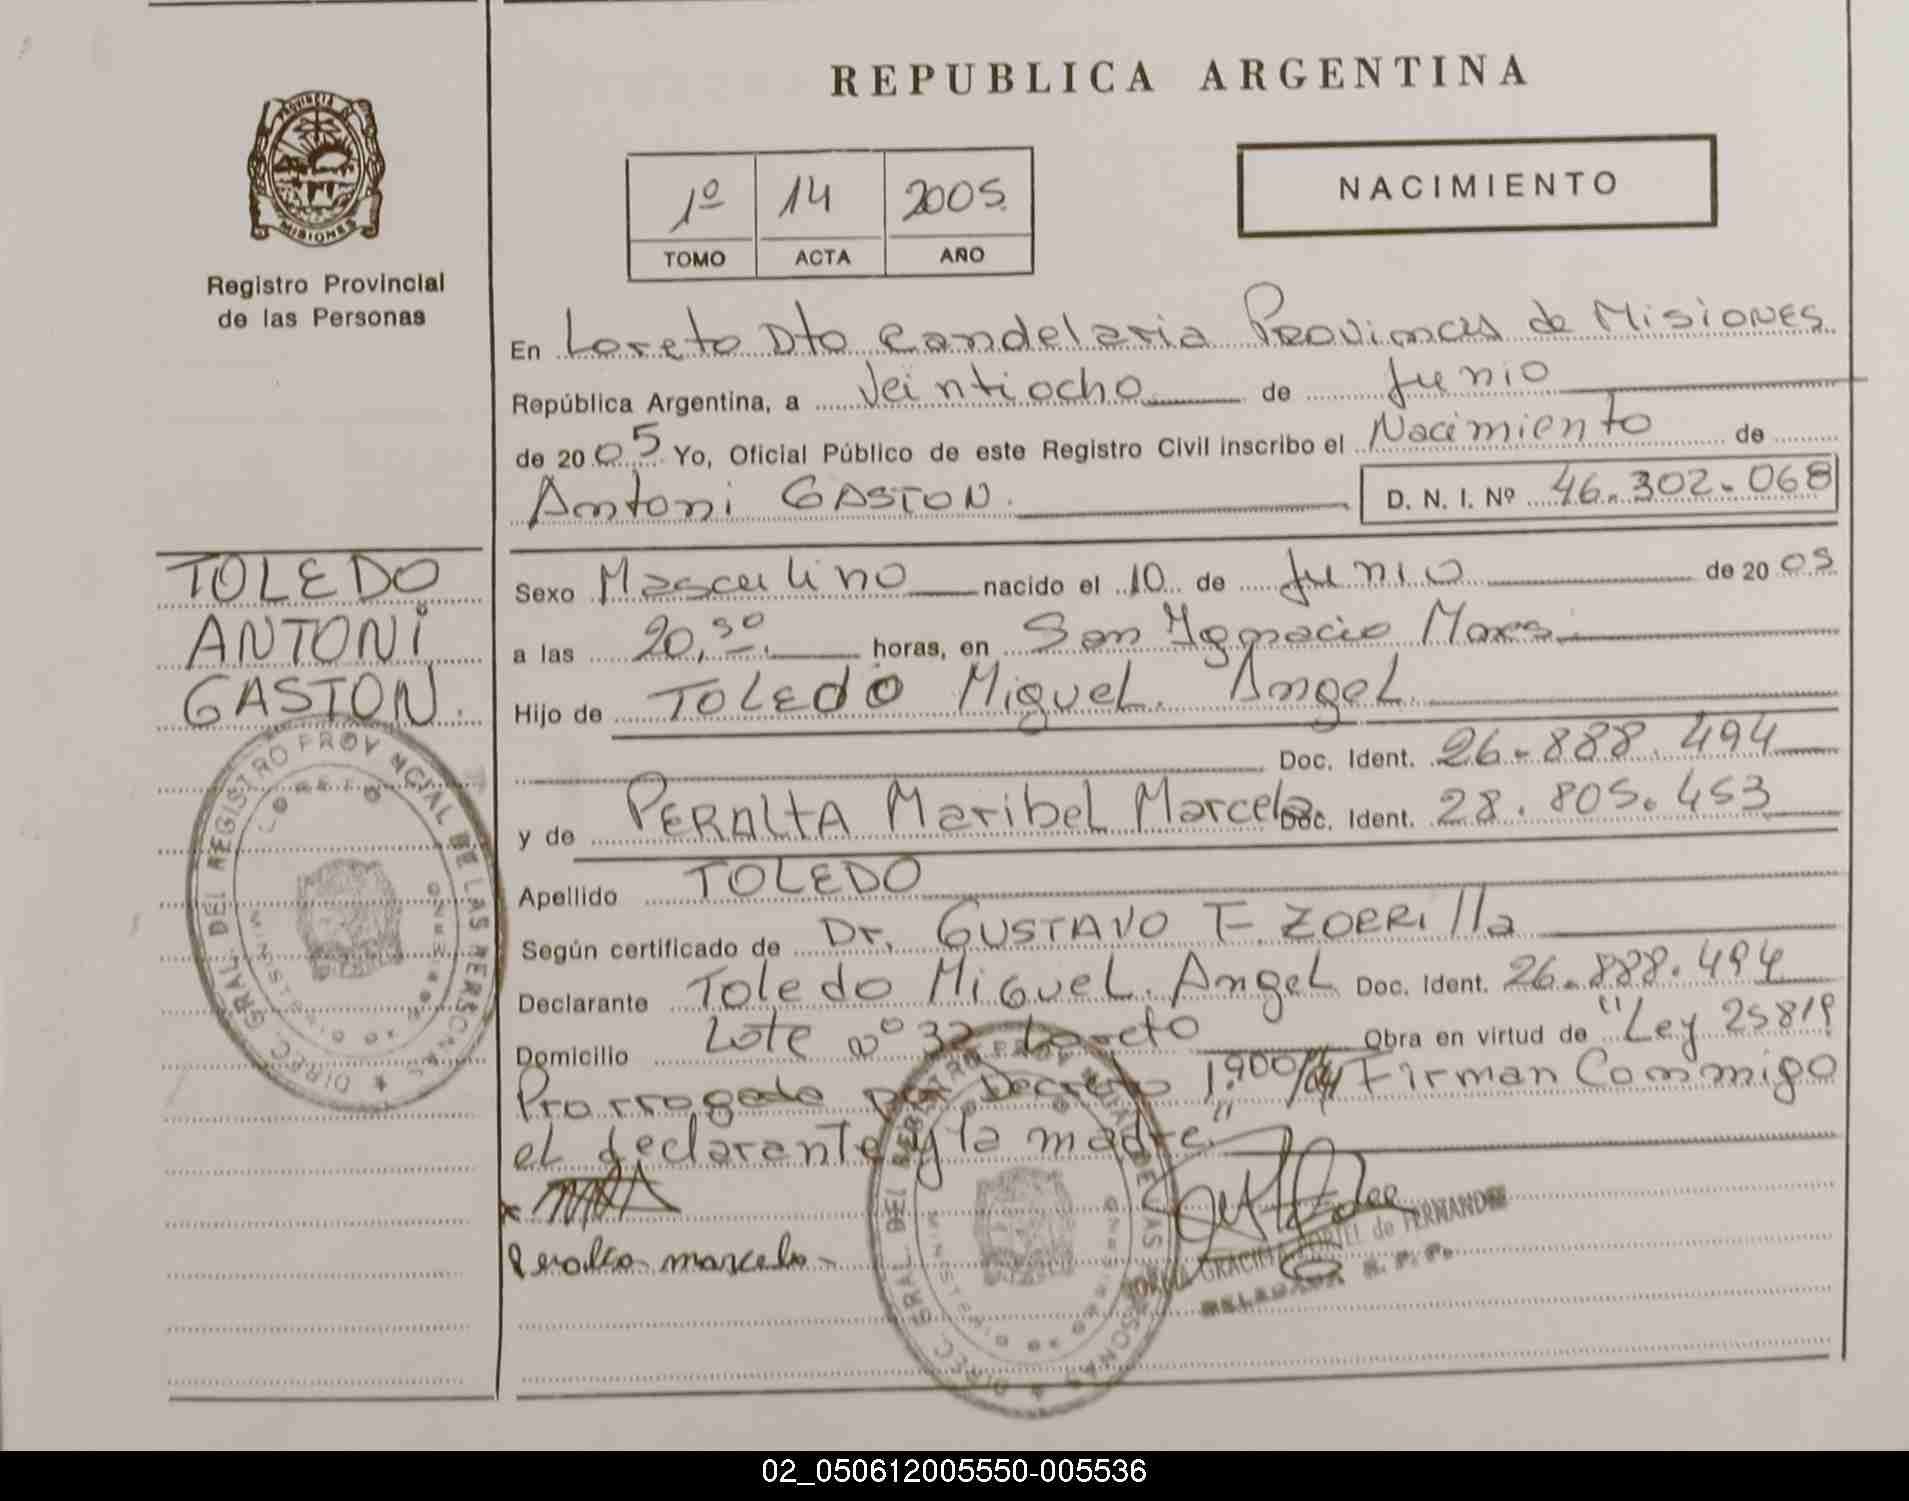 REPUBLICA ARGENTINA
PROVINCIA DE
MISIONES
Registro Provincial
de las Personas
1º 14 2005.
TOMO ACTA AÑO
NACIMIENTO
En Loreto Dto Candelaria Provincias de Misiones
República Argentina, a Veintiocho de Junio
de 2005 Yo, Oficial Público de este Registro Civil inscribo el Nacimiento de
Antoni GASTON. D. N. I. Nº 46.302.068
TOLEDO
ANTONI
GASTON.
Sexo Masculino nacido el 10 de Junio de 2005
a las 20,30. horas, en San Ignacio Mnes.
Hijo de TOLEDO Miguel. Angel
Doc. Ident. 26.888.494
y de PERALTA Maribel Marcela Doc. Ident. 28.805.453
Apellido TOLEDO
Según certificado de Dr. GUSTAVO F. ZORRILLA
Declarante Toledo Miguel. Angel Doc. Ident. 26.888.494
Domicilio Lote nº 32 Loreto Obra en virtud de "Ley 25819
Prorrogada por Decreto 1.900/04" Firman Conmigo
el declarante y la madre.
Peralta marcela
GRACIELA PORTEL de FERNANDEZ
DELEGADA R. P. P.
DIREC. GRAL. DEL REGISTRO PROVINCIAL DE LAS PERSONAS
LORETO
MINISTERIO DE GOBIERNO
DIREC. GRAL. DEL REGISTRO PROVINCIAL DE LAS PERSONAS
MINISTERIO DE GOBIERNO
02_050612005550-005536